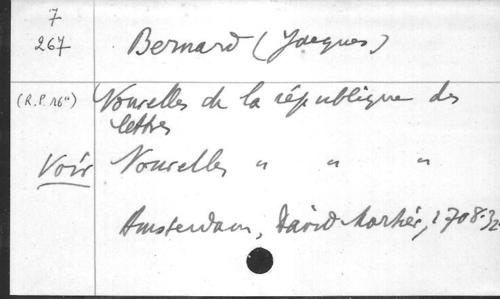 7
267
Bernard (Jacques)
(R.P. 16")
Nouvelles de la république des
lettres
Voir Nouvelles " " "
Amsterdam, David Mortier, 1708.